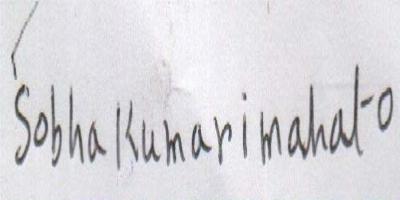 Sobha Kumari mahato